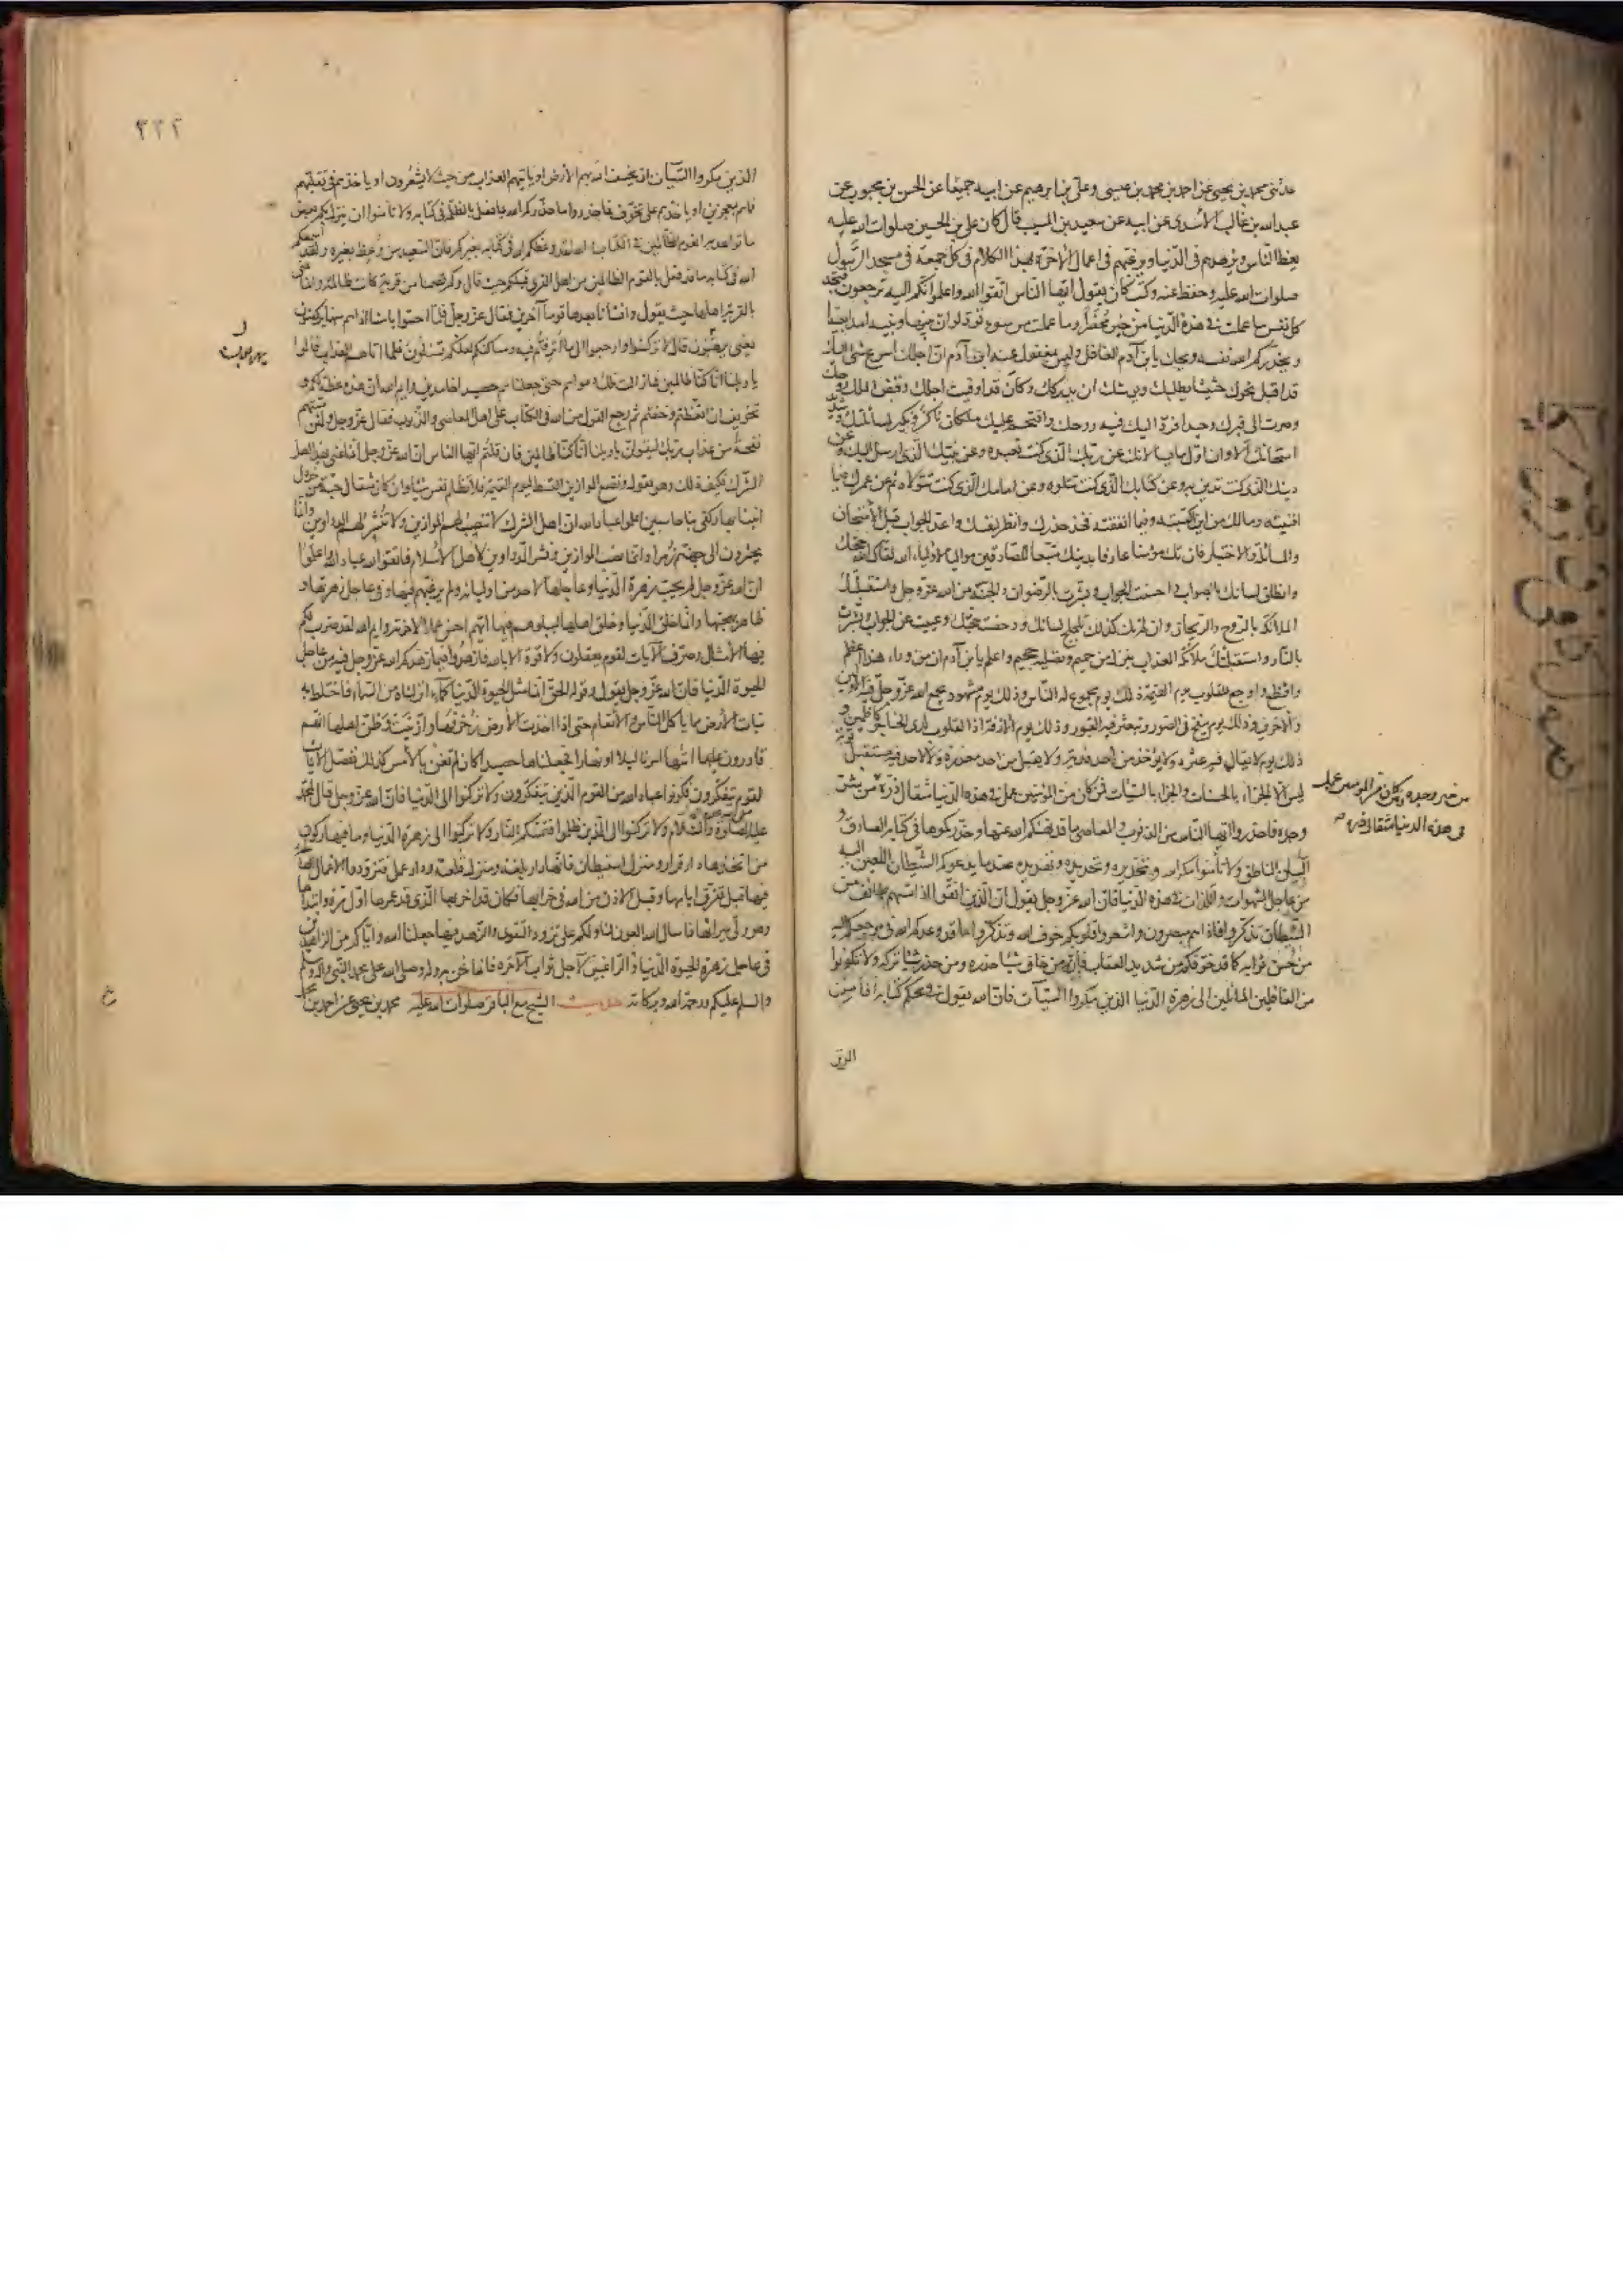 حدثنى محمد بن يحيى عن احمد بن محمد بن عيسى وعلى بن ابرهيم عن ابيه جميعا عن الحسن بن محبوب عن
عبدالله بن غالب الأسدى عن ابيه عن سعيد بن المسيب قال كان على بن الحسين صلوات الله عليه
يعظ الناس ويزهدهم فى الدنيا ويرغبهم فى اعمال الآخرة بهذا الكلام فى كل جمعة فى مسجد الرسول
صلوات الله عليه وحفظ عنه وكتب كان يقول ايها الناس اتقوا الله واعلموا انكم اليه ترجعون فتجد
كل نفس ما عملت فى هذه الدنيا من خير محضرا وما عملت من سوء تود لو ان بينها وبينه امدا بعيدا
ويحذركم الله نفسه ويحك يا بن آدم الغافل وليس بمغفول عنه ابن آدم ان اجلك اسرع شئ اليك
قد اقبل نحوك حثيثا يطلبك ويوشك ان يدركك وكان قد اوفيت اجلك وقبض الملك روحك
وصرت الى قبرك وحيدا فرد اليك فيه روحك واقتحم عليك ملكان ناكر ونكير لمسائلتك وشديد
امتحانك الا وان اول ما يسألانك عن ربك الذى كنت تعبده وعن نبيك الذى ارسل اليك وعن
دينك الذى كنت تدين به وعن كتابك الذى كنت تتلوه وعن امامك الذى كنت تتولاه ثم عن عمرك فيما
افنيته ومالك من اين اكتسبته وفيما انفقته فخذ حذرك وانظر لنفسك واعد الجواب قبل الأمتحان
والمسائلة والاختبار فان تك مؤمنا عارفا بدينك متبعا للصادقين مواليا لأولياء الله لقاك الله حجتك
وانطق لسانك بالصواب واحسنت الجواب وبشرت بالرضوان والجنة من الله عز وجل واستقبلتك
الملائكة بالروح والريحان وان لم تك كذلك تلجلج لسانك ودحضت حجتك وعييت عن الجواب وبشرت
بالنار واستقبلتك ملائكة العذاب بنزل من حميم وتصلية جحيم واعلم يا بن آدم ان من وراء هذا اعظم
وافظع واوجع للقلوب يوم القيمة ذلك يوم مجموع له الناس وذلك يوم مشهود يجمع الله عز وجل فيه الاولين
والآخرين ذلك يوم ينفخ فى الصور وتبعثر فيه القبور وذلك يوم الآزفة اذ القلوب لدى الحناجر كاظمين و
ذلك يوم لا تقال فيه عثرة ولا يؤخذ من احد فدية ولا يقبل من احد معذرة ولا لاحد فيه مستقبل توبة
ليس الا الجزاء بالحسنات والجزاء بالسيئات فمن كان من المؤمنين عمل فى هذه الدنيا مثقال ذرة من شر
وجده فاحذروا ايها الناس من الذنوب والمعاصى ما قد نهاكم الله عنها وحذركموها فى كتابه الصادق و
البيان الناطق ولا تأمنوا مكر الله وتحذيره وتهديده عند ما يدعوكم الشيطان اللعين اليه
من عاجل الشهوات واللذات فى هذه الدنيا فان الله عز وجل يقول ان الذين اتقوا اذا مسهم طائف من
الشيطان تذكروا فاذا هم مبصرون واشعروا قلوبكم خوف الله وتذكروا ما قد وعدكم الله فى مرجعكم اليه
من حسن ثوابه كما قد خوفكم من شديد العقاب فانه من خاف شيئا حذره ومن حذر شيئا تركه ولا تكونوا
من الغافلين المائلين الى زهرة الدنيا الذين مكروا السيئات فان الله يقول فى محكم كتابه افأمن
الذين
من خير وجده ومن كان من المؤمنين عمل
فى هذه الدنيا مثقال ذرة
٢٢٢
الذين مكروا السيئات ان يخسف الله بهم الأرض او يأتيهم العذاب من حيث لا يشعرون او ياخذهم فى تقلبهم
فما هم بمعجزين او ياخذهم على تخوف فاحذروا ما حذركم الله بما فعل بالظلمة فى كتابه ولا تأمنوا ان ينزل بكم بعض
ما تواعد به القوم الظالمين فى الكتاب والله لقد وعظكم الله فى كتابه بغيركم فان السعيد من وعظ بغيره ولقد اسمعكم
الله فى كتابه ما قد فعل بالقوم الظالمين من اهل القرى قبلكم حيث قال وكم قصمنا من قرية كانت ظالمة وانما عنى
بالقرية اهلها حيث يقول وانشأنا بعدها قوما آخرين فقال عز وجل فلما احسوا بأسنا اذا هم منها يركضون
يعنى يهربون قال لا تركضوا وارجعوا الى ما اترفتم فيه ومساكنكم لعلكم تسئلون فلما اتاهم العذاب قالوا
يا ويلنا انا كنا ظالمين فما زالت تلك دعواهم حتى جعلناهم حصيدا خامدين وايم الله ان هذه عظة لكم و
تخويف ان اتعظتم وخفتم ثم رجع القول من الله فى الكتاب على اهل المعاصى والذنوب فقال عز وجل ولئن مستهم
نفحة من عذاب ربك ليقولن يا ويلنا انا كنا ظالمين فان قلتم ايها الناس ان الله عز وجل انما عنى بهذا اهل
الشرك فكيف ذلك وهو يقول ونضع الموازين القسط ليوم القيمة فلا تظلم نفس شيئا وان كان مثقال حبة من خردل
اتينا بها وكفى بنا حاسبين اعلموا عباد الله ان اهل الشرك لا تنصب لهم الموازين ولا تنشر لهم الدواوين وانما
يحشرون الى جهنم زمرا وانما نصب الموازين ونشر الدواوين لأهل الأسلام فاتقوا الله عباد الله واعلموا
ان الله عز وجل لم يحب زهرة الدنيا وعاجلها لاحد من اوليائه ولم يرغبهم فيها وفى عاجل زهرتها و
ظاهر بهجتها وانما خلق الدنيا وخلق اهلها ليبلوهم فيها ايهم احسن عملا لآخرته وايم الله لقد ضرب لكم
فيها الأمثال وصرف الآيات لقوم يعقلون ولا قوة الا بالله فازهدوا فيما زهدكم الله عز وجل فيه من عاجل
الحيوة الدنيا فان الله عز وجل يقول وقوله الحق انما مثل الحيوة الدنيا كماء انزلناه من السماء فاختلط به
نبات الأرض مما ياكل الناس والأنعام حتى اذا اخذت الأرض زخرفها وازينت وظن اهلها انهم
قادرون عليها اتيها امرنا ليلا او نهارا فجعلناها حصيدا كان لم تغن بالأمس كذلك نفصل الآيات
لقوم يتفكرون فكونوا عباد الله من القوم الذين يتفكرون ولا تركنوا الى الدنيا فان الله عز وجل قال لمحمد
عليه الصلوة والسلام ولا تركنوا الى الذين ظلموا فتمسكم النار ولا تركنوا الى زهرة الدنيا وما فيها ركون
من اتخذها دار قرار ومنزل استيطان فانها دار بلغة ومنزل قلعة ودار عمل فتزودوا الاعمال الصالحة
فيها قبل تفرق ايامها وقبل الاذن من الله فى خرابها فكان قد اخربها الذى قد عمرها اول مرة وابتداها
وهو ولى ميراثها فاسال الله العون لنا ولكم على تزود التقوى والزهد فيها جعلنا الله واياكم من الزاهدين
فى عاجل زهرة الحيوة الدنيا والراغبين لآجل ثواب الآخرة فانما نحن به وله وصلى الله على محمد النبى وآله وسلم
والسلم عليكم ورحمة الله وبركاته حديث الشيخ مع الباقر صلوات الله عليه محمد بن يحيى عن احمد بن محمد